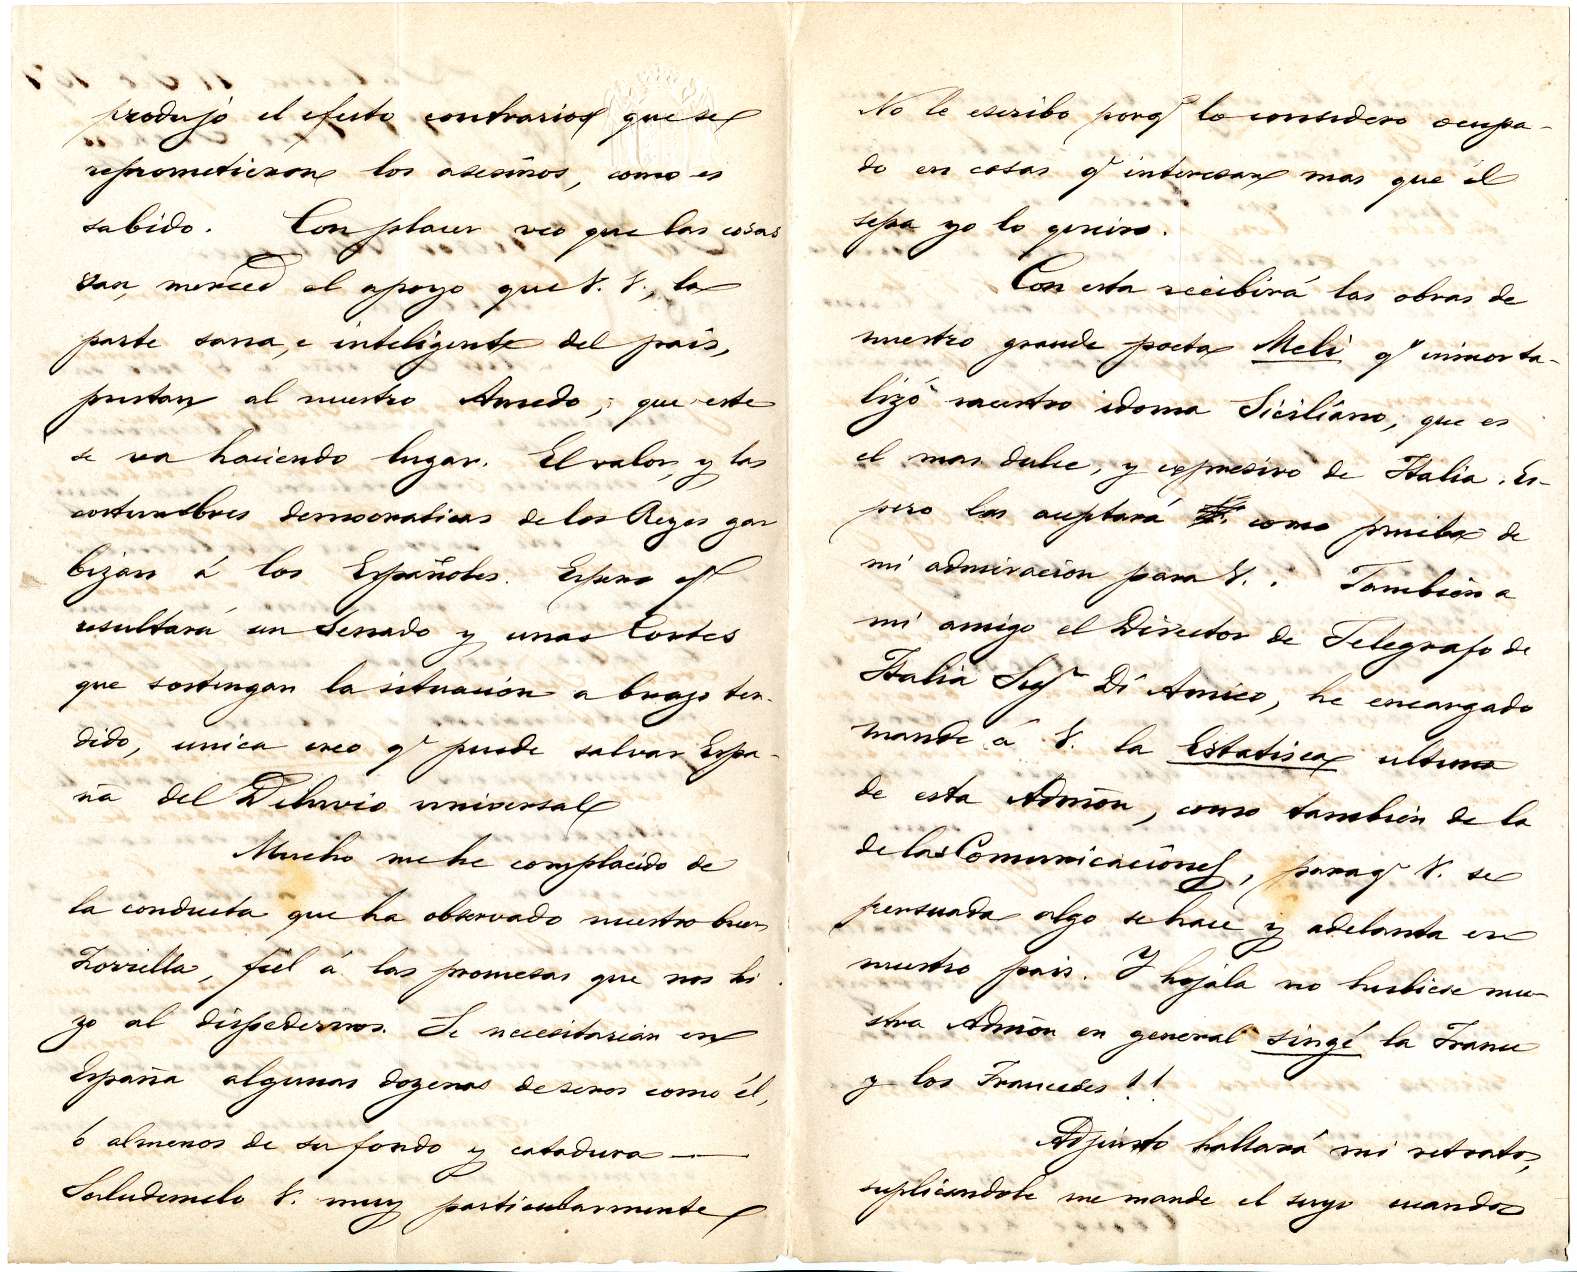 produjo el efecto contrario que se
reprometieron los asesinos, como es
sabido. Con placer veo que las cosas
van, merced el apoyo que V. V., la
parte sana, e inteligente del pais,
prestan al nuestro Amedo; que este
se va haciendo lugar. El valor, y las
costumbres democraticas de los Reyes gar
bizan á los Españoles. Espero qe
resultará un Senado y unas Cortes
que sostengan la situacion a brazo ten-
dido, unica creo qe puede salvar Espa-
ña del Deluvio universal
Mucho me he complacido de
la conducta que ha observado nuestro buen
Zorrilla, fiel á las promesas que nos hi
zo al dispedernos. Se necesitarian en
España algunas dozenas de seres como él,
ó almenos de su fondo y catadura —
Saludemelo V. muy particularmente
No le escribo porqe lo considero ocupa-
do en cosas qe interesan mas que él
sepa yo lo quiero.
Con esta recibirá las obras de
nuestro grande poeta Meli qe inmorta-
lizó nuestro idoma Siciliano, que es
el mas dulce, y expresivo de Italia. Es-
pero las aceptará como prueba de
mi admiracion para V. . Tambien a
mi amigo el Director de Telegrafo de
Italia Sigr Di Amico, he encargado
mande á V. la Estatisca ultima
de esta Admon, como tambien de la
de las Comunicaciones, paraqe V. se
persuada algo se hace y adelanta en
nuestro pais. Y hojala no hubiese nue-
stra Admon en general singé la France
y los Francedes!!
Adjunto hallará mi retrato,
suplicandole me mande el suyo cuando